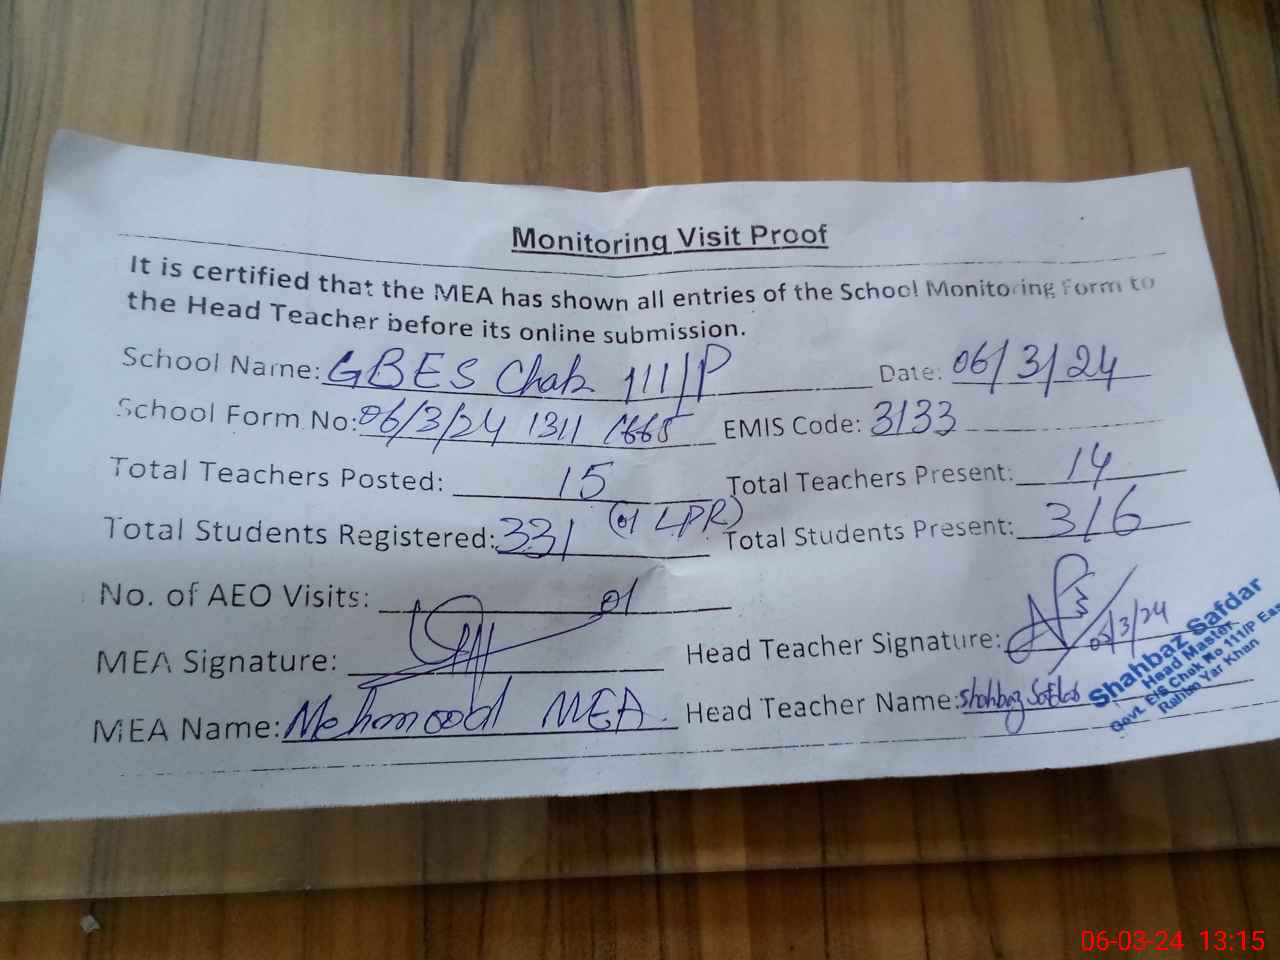 Monitoring Visit Proof
It is certified that the MEA has shown all entries of the School Monitoring Form to
the Head Teacher before its online submission.
School Name: GBES Chak 111/P Date: 06/3/24
School Form No: 06/3/24 1311 1665 EMIS Code: 3133
Total Teachers Posted: 15 Total Teachers Present: 14
(01 LPR)
Total Students Registered: 331 Total Students Present: 316
No. of AEO Visits: 01
MEA Signature: Head Teacher Signature: 06/3/24
MEA Name: Mehmood MEA Head Teacher Name: Shahbaz Safdar
Shahbaz Safdar
Head Master
Govt. E/S Chak No 111/P Eas
Rahim Yar Khan
06-03-24 13:15